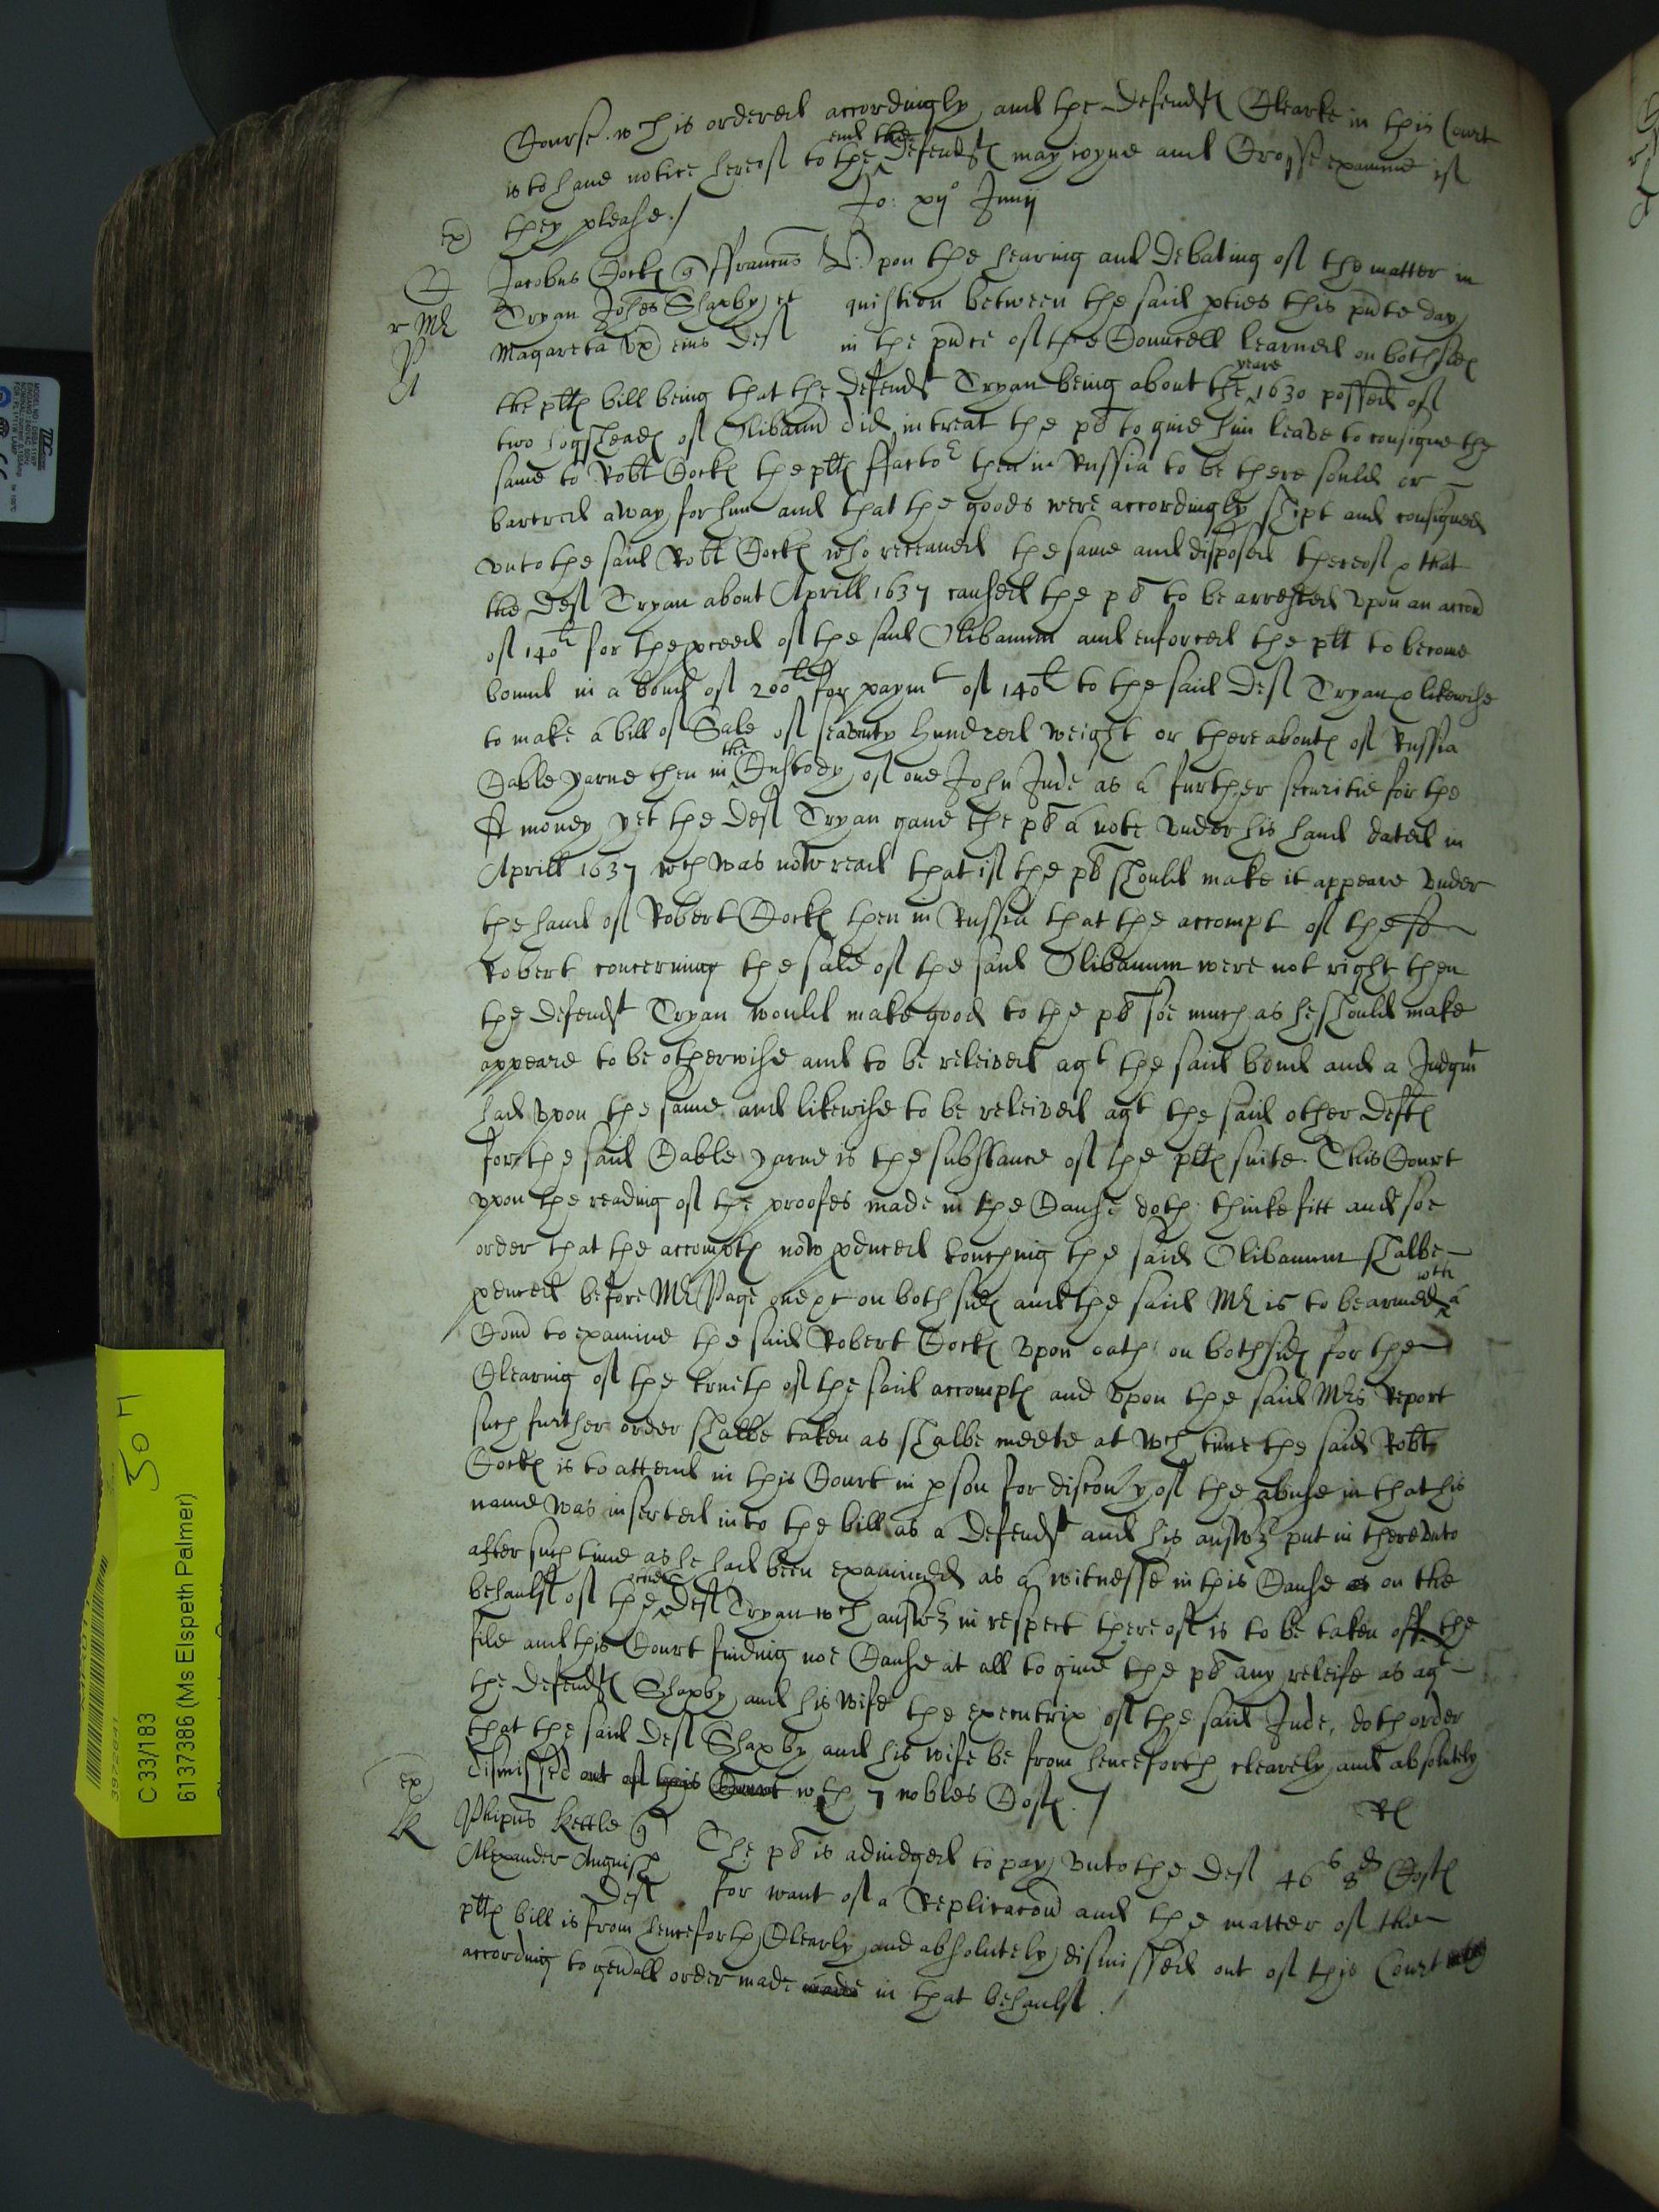 Course wch is ordered accordingly and the defendts Clearke in this Court
is to haue notice hereof to the end the defendts may ioyne and Crosse examine if
they please./ Jo: xij° Junij
ex
C Jacobus Cocks q ffrancus Vpon the hearing and debating of the matter in
r Mr Tryan Johes Shaxby et question between the said pties this pnte day
P Magareta vx eius def in the pnce of the Councell learned on both sides
A the plts bill being that the defendt Tryan being about the yeare 1630 possed of
two hogsheads of Olibanu did intreat the pl to giue him leaue to consigne the
same to Robt Cocks the plts ffactor then in Russia to be there sould or
bartred away for him and that the goods were accordingly shipt and consigned
vnto the said Robt Cocks who receaued the same and disposed thereof & that
the def Tryan about Aprill 1637 caused the pl to be arrested vpon an accon
of 140li for the pceed of the said Olibanum and enforced the plt to become
bound in a bond of 200li for paymt of 140li to the said def Tryan & likewise
to make a bill of Sale of seaventy hundred weight or thereabouts of Russia
Cable yarne then in the Custody of one John Jude as a further securitie for the
sd money yet the def Tryan gaue the pl a note vnder his hand dated in
Aprill 1637 wch was now read that if the pl should make it appeare vnder
the hand of Robert Cocks then in Russia that the accompt of the sd
Robert concerning the sale of the said Olibanum were not right then
the defendt Tryan would make good to the pl soe much as he should make
appeare to be otherwise and to be releived agt the said bond and a Judgmt
had vpon the same and likewise to be releived agt the said other defts
for the said Cable yarne is the substance of the plts suite This Court
vpon the reading of the proofes made in the Cause doth thinke fitt and soe
order that the accompts now pduced touching the said Olibanum shalbe
pduced before Mr Page one pt on both sides and the said Mr is to be armed wth a
Comn to examine the said Robert Cocks vpon oath on both sides for the
Clearing of the trueth of the said accompts and vpon the said Mrs Report
such further order shalbe taken as shalbe meete at wch time the said Robt
Cocks is to attend in this Court in pson for discouy of the abuse in that his
name was inserted into the bill as a defendt and his answr put in therevnto
after such time as he had been examined as a witnesse in this Cause on the
behaulf of the def Tryan wch answr in respect thereof is to be taken off the
file and this Court finding noe Cause at all to giue the pl any releife as agt
the defendts Shaxby and his wife the executrix of the said Jude, doth order
that the said def Shaxby and his wife be from henceforth clearely and absolutely
dismissed out of this Court wth 7 nobles Costs./
ex Rl
K Phipus Kettle q The pl is adiudged to pay vnto the def 46s 8d Costs
Alexander Anguish def for want of a Replicacon and the matter of the
plts bill is from henceforth Clearly and absolutely dismissed out of this Court
according to genall order made made in that behaulf./
50 H
C 33/183
6137386 (Ms Elspeth Palmer)